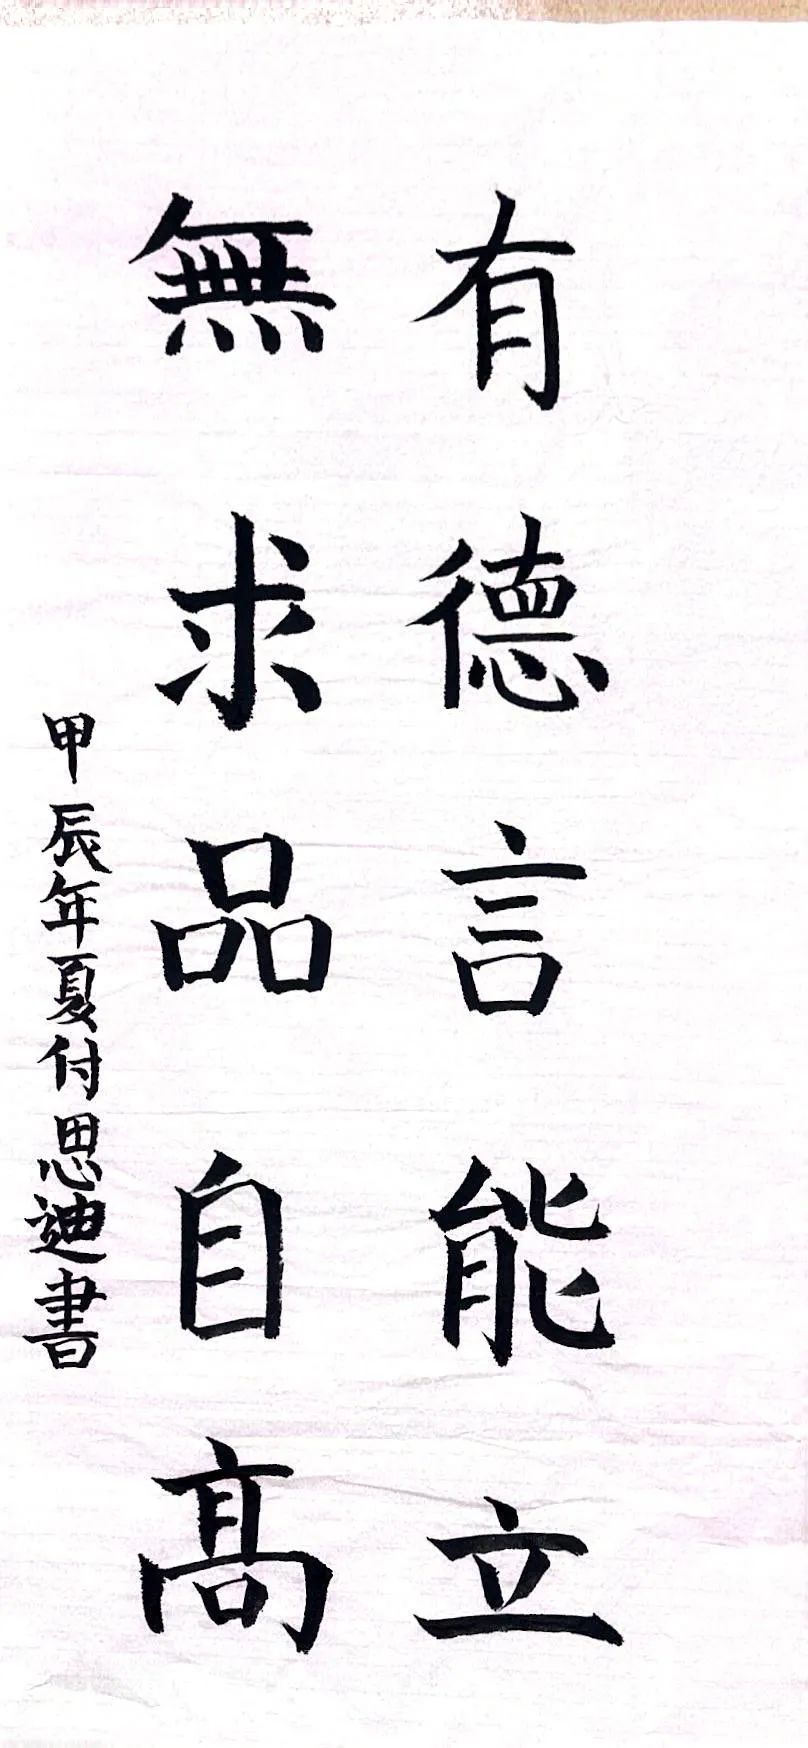 有德言能立
無求品自高
甲辰年夏付思迪書